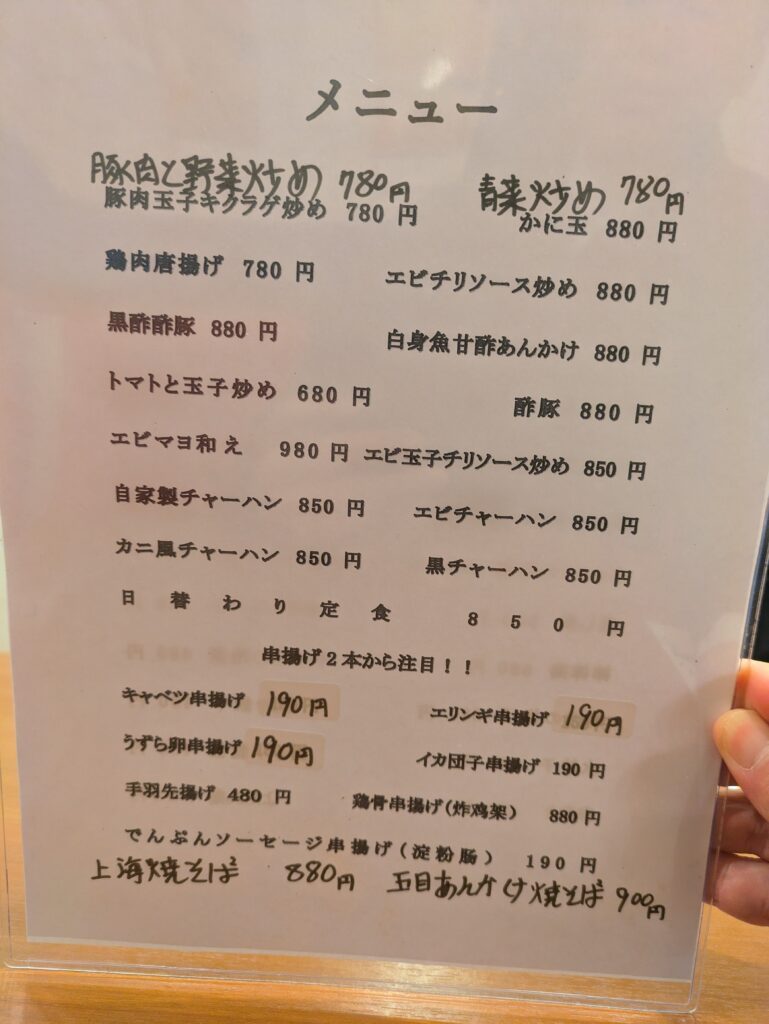 メニュー
豚肉と野菜炒め 780円 青菜炒め 780円
豚肉玉子キクラゲ炒め 780 円 かに玉 880 円
鶏肉唐揚げ 780 円 エビチリソース炒め 880 円
黒酢酢豚 880 円 白身魚甘酢あんかけ 880 円
トマトと玉子炒め 680 円 酢豚 880 円
エビマヨ和え 980 円 エビ玉子チリソース炒め 850 円
自家製チャーハン 850 円 エビチャーハン 850 円
カニ風チャーハン 850 円 黒チャーハン 850 円
日替わり定食 850 円
串揚げ2本から注目!!
キャベツ串揚げ 190円 エリンギ串揚げ 190円
うずら卵串揚げ 190円 イカ団子串揚げ 190 円
手羽先揚げ 480 円 鶏骨串揚げ(炸鸡架) 880 円
でんぷんソーセージ串揚げ(淀粉肠) 190 円
上海焼そば 880円 五目あんかけ焼そば 900円